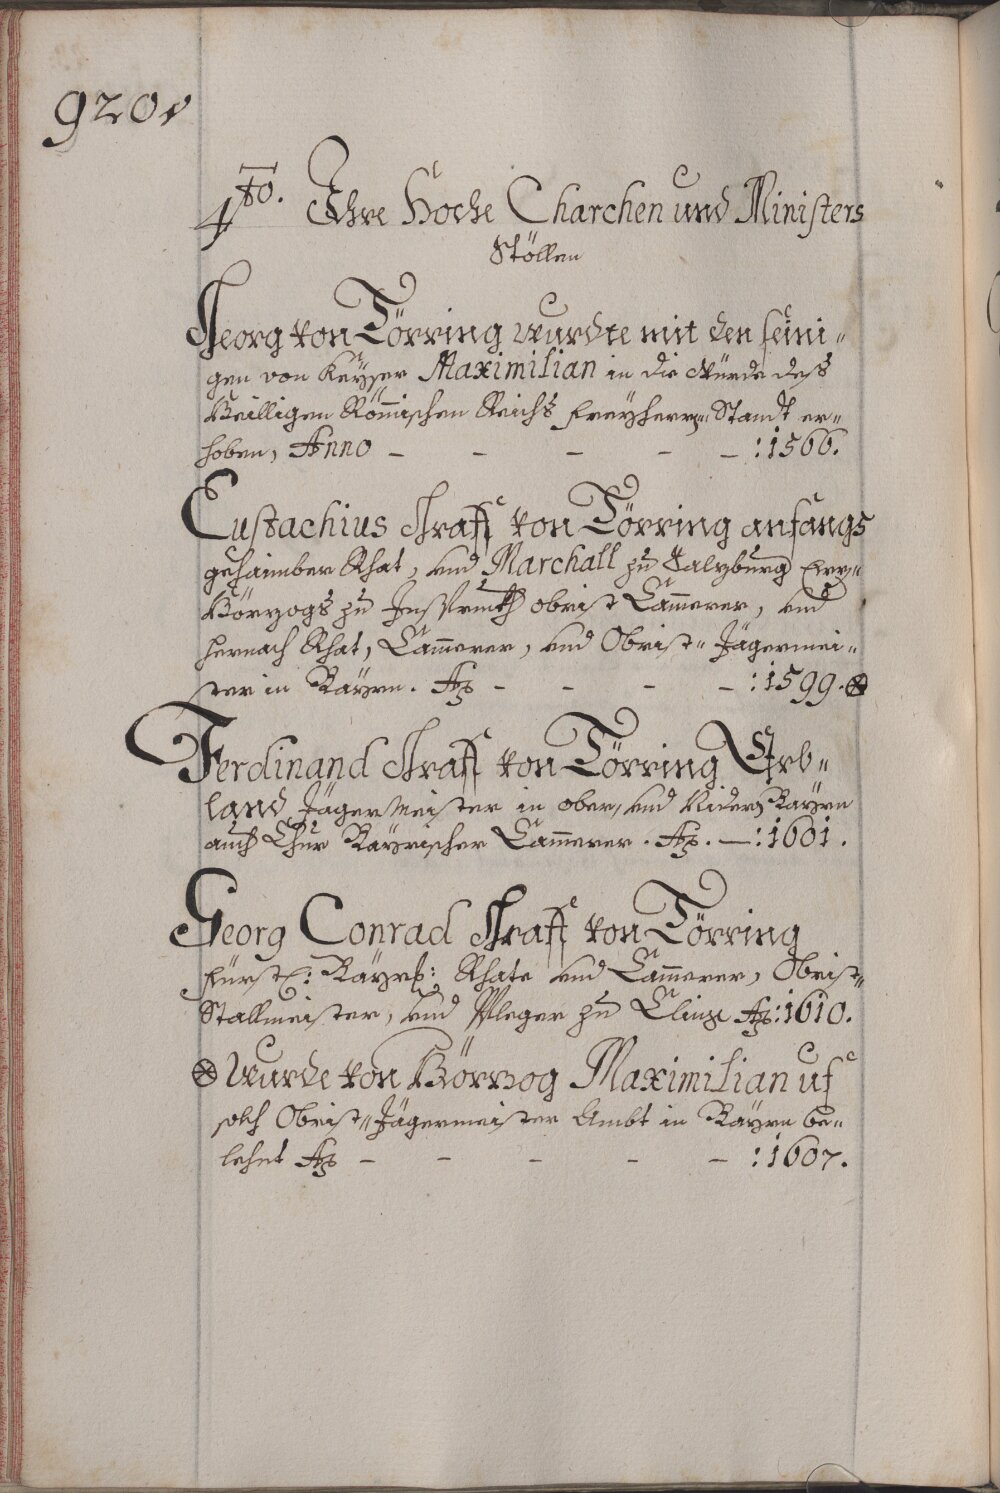 920v
4to. Ihre Hoche Charchen und Ministers
Stöllen
Georg von Törring wurdte mit den seini-
gen von Keyser Maximilian in die Würde deß
Heilligen Römischen Reichs Freyherrn Standt er-
hoben, Anno - - - - - :1566.
Eustachius Graff von Törring anfangs
gehaimber Rhat, und Marchall zu Salzburg Erz-
Hörzogs zu Insprukh obrist Cammerer, und
hernach Rhat, Cammerer, und Obrist-Jägermei-
ster in Bayrn. Ao - - - - :1599. ⊗
Ferdinand Graff von Törring Erb-
land Jägermeister in ober, und Nidern Bayrn
auch Chur Bayrischer Cammerer. Ao. - :1601.
Georg Conrad Graff von Törring
Fürstl: Bayrl: Rhate und Cammerer, Obrist-
Stallmeister, und Pfleger zu Cling Ao:1610.
⊗ Wurde von Hörzog Maximilian uf
solch Obrist-Jägermeister Ambt in Bayrn be-
lehnt Ao - - - - - :1607.